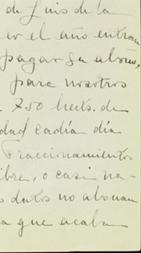 de Luis de la
el año entran
pagar su abono,
para nosotros
200 hects. de
dad cadía día
Fraccionamientos
ibre, o casi na-
s datos no abonan
a que acaba